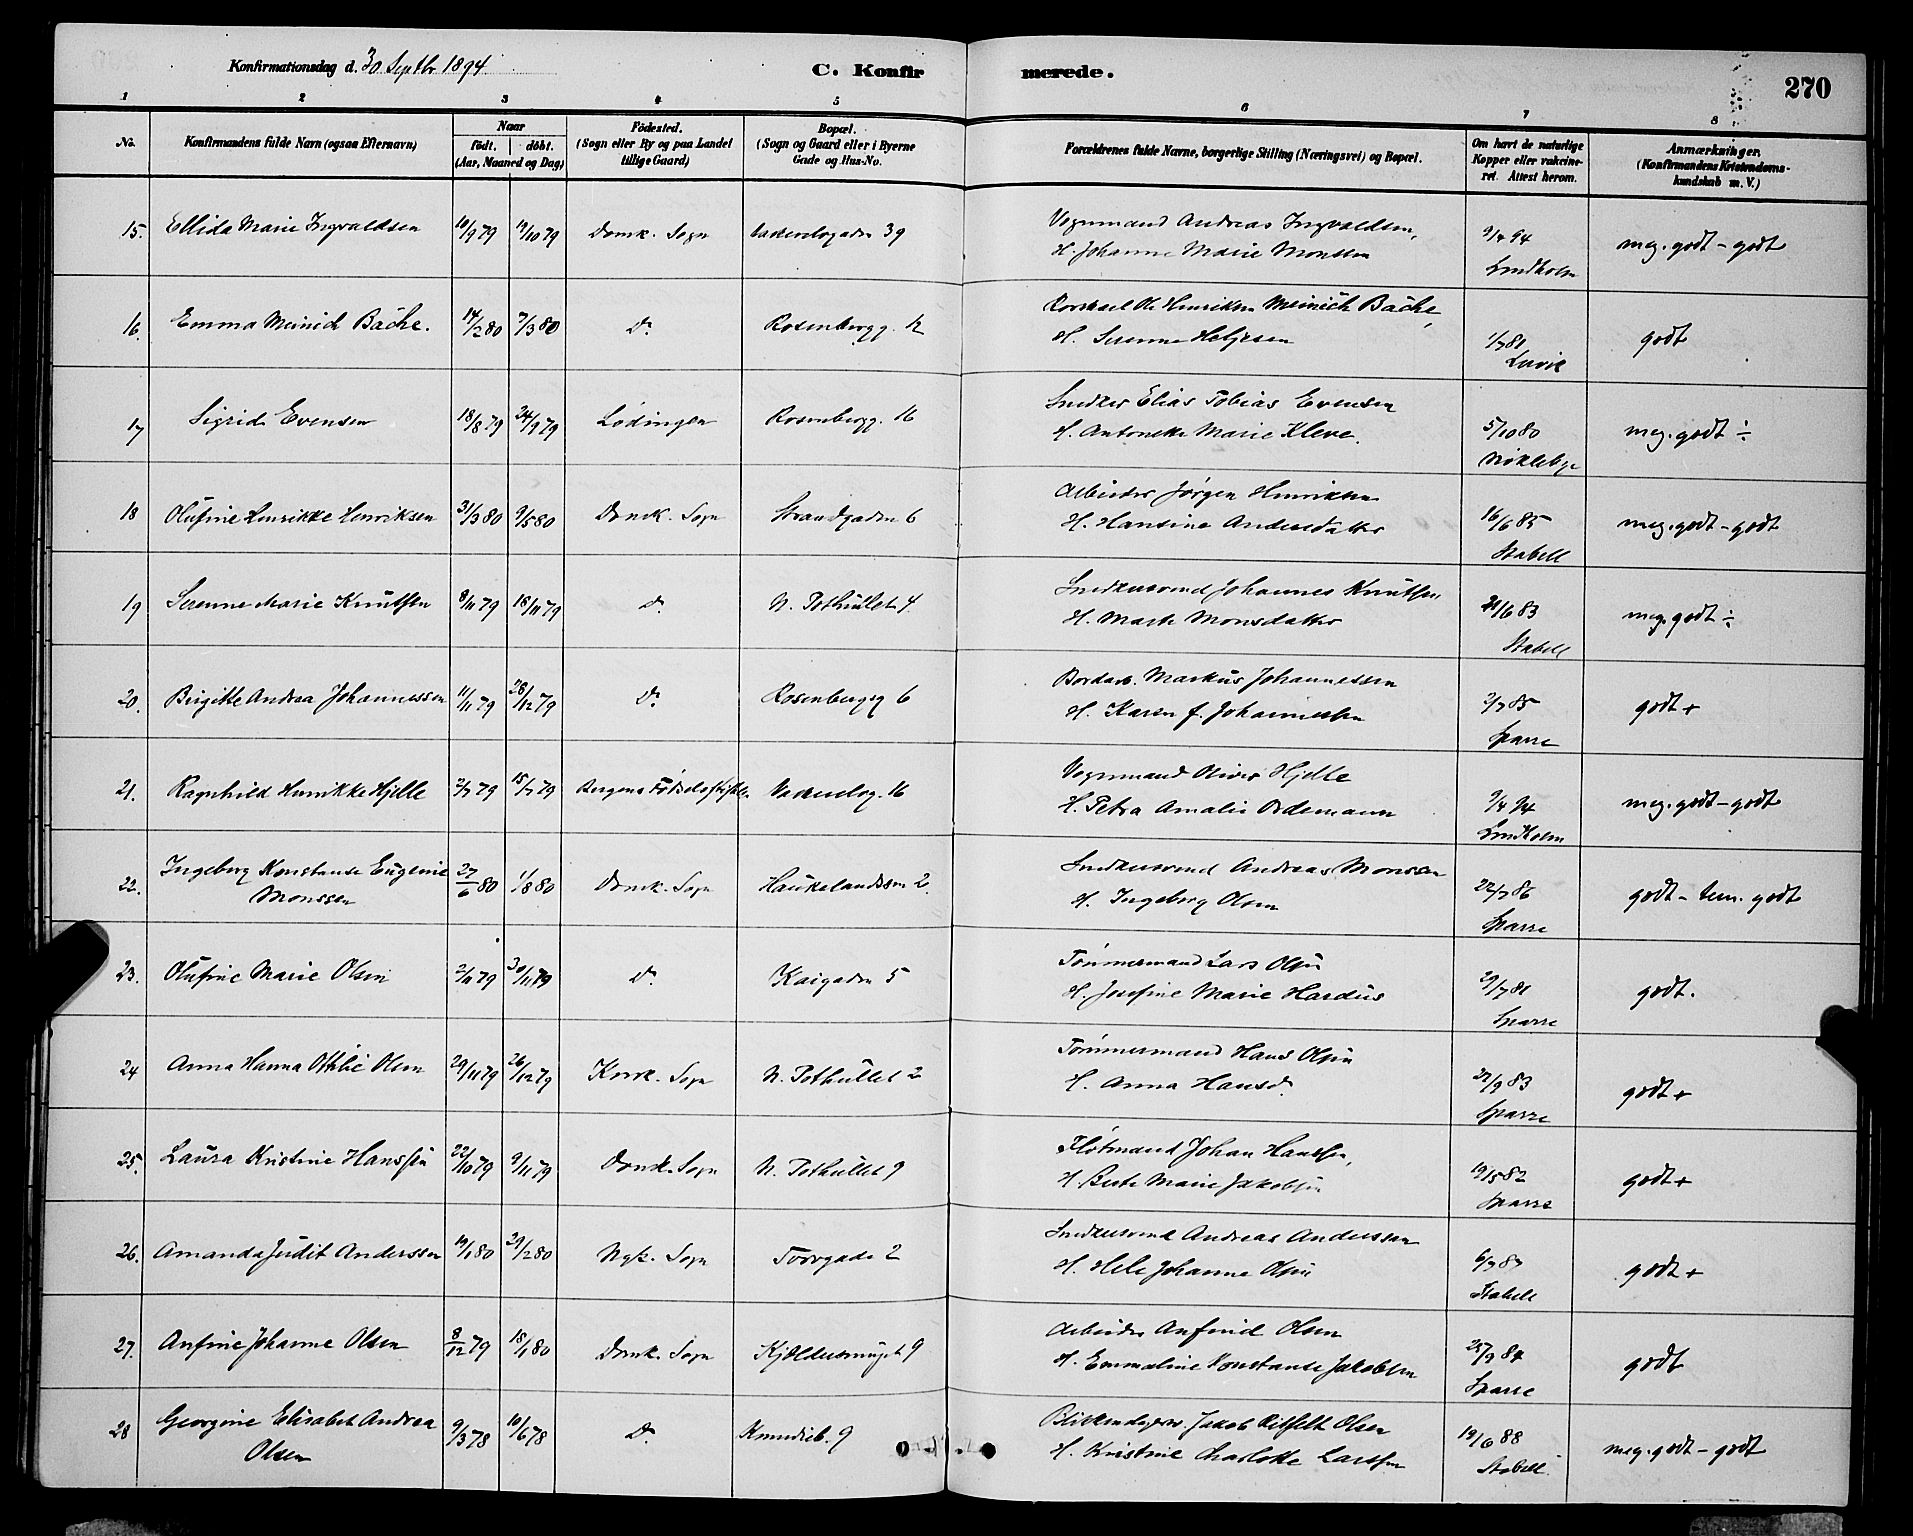 Konfirmationsdag d. 30 Septbr 1894
C. Konfir merede. 270
1 2 3 4 5 6 7 8
No. Konfirmandens fulde Navn (ogsaa Efternavn) Naar födt. döbt. (Aar, Maaned og Dag) Födested. (Sogn eller By og paa Landet tillige Gaard) Bopæl. (Sogn og Gaard eller i Byerne Gade og Hus-No. Forældrenes fulde Navne, borgerlige Stilling (Næringsvei) og Bopæl. Om havt de naturlige Kopper eller vakcineret. Attest herom. Anmærkninger. (Konfirmandens Kristendomskundskab m. V.)
15. Ellida Marie Ingvaldsen 10/9 79 19/10 79 Domk. Sogn 39 Vognmand Andreas Ingvaldsen, 9/4 94 meg. godt - godt
H. Johanne Marie Monsen Lindholm
16. Emma Meinich Bache. 14/2 80 7/3 80 Do Rosenbergg. 12 Henriksen Meinich Bache, 1/7 81 godt
H. Serenne
17 Sigrid Evensen 18/8 79 24/9 79 Lödingen Rosenbergg. 16 Snedker Elias Tobias Evensen 5/10 80 meg. godt ÷
H. Antonette Marie Kleve.
18 Olufine Henrikke Henriksen 31/3 80 9/5 80 Domk. Sogn Strandgaden 6 Arbeider Jörgen Henriksen 16/6 85 meg. godt - godt
H. Hansine Andersdatter Stabell
19 Serenne Marie Knutsen 8/11 79 18/11 79 Do N. Pothullet 4 Snedkersvend Johannes Knutsen 21/6 83 meg. godt ÷
H. Marte Monsdatter Stabell
20. Birgitte Andrea Johannessen 11/11 79 28/12 79 Do Rosenbergg 6 Bordarb. Markus Johannessen 2/7 85 godt +
H. Karen f. Johannessen Sparre
21. Ragnhild Henrikke Hjelle 2/7 79 15/7 79 Bergens Födselsstift. 16 Vognmand Oliver Hjelle 9/4 94 meg. godt - godt
H. Petra Amalie Ordemann Lindholm
22. Ingeborg Konstanse Eugenie 27/6 80 1/8 80 Domk. Sogn Haukelandsvn 2. Snedkersvend Andreas Monssen 22/7 86 godt - tem. godt
Monssen H. Ingeborg Olsen Sparre
23. Olufine Marie Olsen 2/11 79 30/11 79 Do Kaigaden 5 Tömmermand Lars Olsen 29/7 81 godt.
H. Josefine Marie Hardus Sparre
24 Anna Hanna Ottilie Olsen 29/11 79 26/12 79 Kork. Sogn N. Pothullet 2 Tömmermand Hans Olsen 27/9 83 godt +
H. Anna Hansd. Sparre
25. Laura Kristine Hanssen 22/10 79 9/11 79 Domk. Sogn N. Pothullet 9 Flötmand Johan Hanssen, 19/5 82 godt +
H. Berte Marie Jakobsen Sparre
26. Amanda Judit Anderssen 19/1 80 29/2 80 Nyk. Sogn Torvgade 2 Snedkersvend Andreas Anderssen 6/7 87 godt +
H. Hele Johanne Olsen Stabell
27. Anfine Johanne Olsen 8/12 79 18/1 80 Domk. Sogn Kjeldersmuget 9 Arbeider Anfind Olsen 25/9 84 godt
H. Emmeline Konstanse Jakobsen Sparre
28 Georgine Elisabet Andrea 9/3 78 10/6 78 Do 9 Jakob Olsen 19/6 88 meg. godt - godt
Olsen H. Kristine Charlotte Larssen Stabell